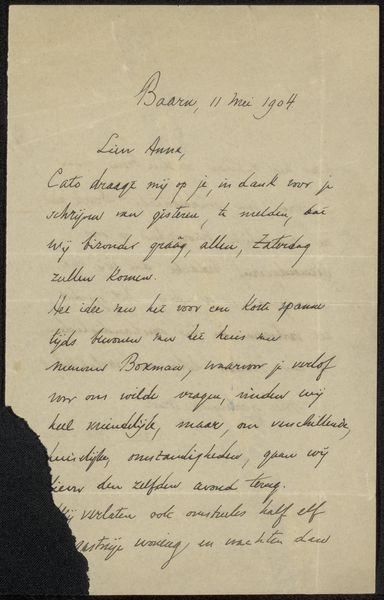 Baarn, 11 Mei 1904.
Lieve Anna,
Cato draagt mij op je, in dank voor je
schrijven van gisteren, te melden, dat
wij bizonder graag, allen, Zaterdag
zullen komen.
Het idee om het voor een korte spanne
tijds bewonen van het huis van
mevrouw Boxman, waarvoor je verlof
voor ons wilde vragen, vinden wij
heel vriendelijk, maar, om verschillende,
huiselijke, omstandigheden, gaan wij
liever den zelfden avond terug.
Wij verlaten ook omstreeks half elf
woning, en wachten dan